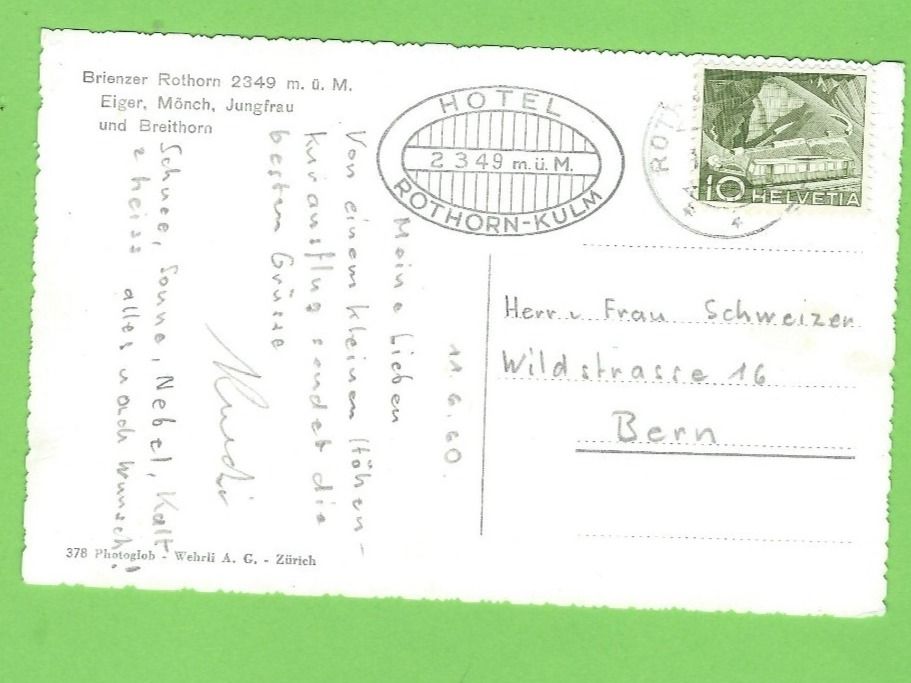 Brienzer Rothorn 2349 m. ü. M.
Eiger, Mönch, Jungfrau
und Breithorn
HOTEL
2349 m.ü.M.
ROTHORN-KULM
ROTH
10 HELVETIA
11. 6. 60.
Meine Lieben
Von einem kleinen Höhen-
kurausflug sendet die
besten Grüsse
Schnee, Sonne, Nebel, Kalt
heiss alles nach Wunsch!
Herr u. Frau Schweizer
Wildstrasse 16
Bern
378 Photoglob - Wehrli A. G. - Zürich